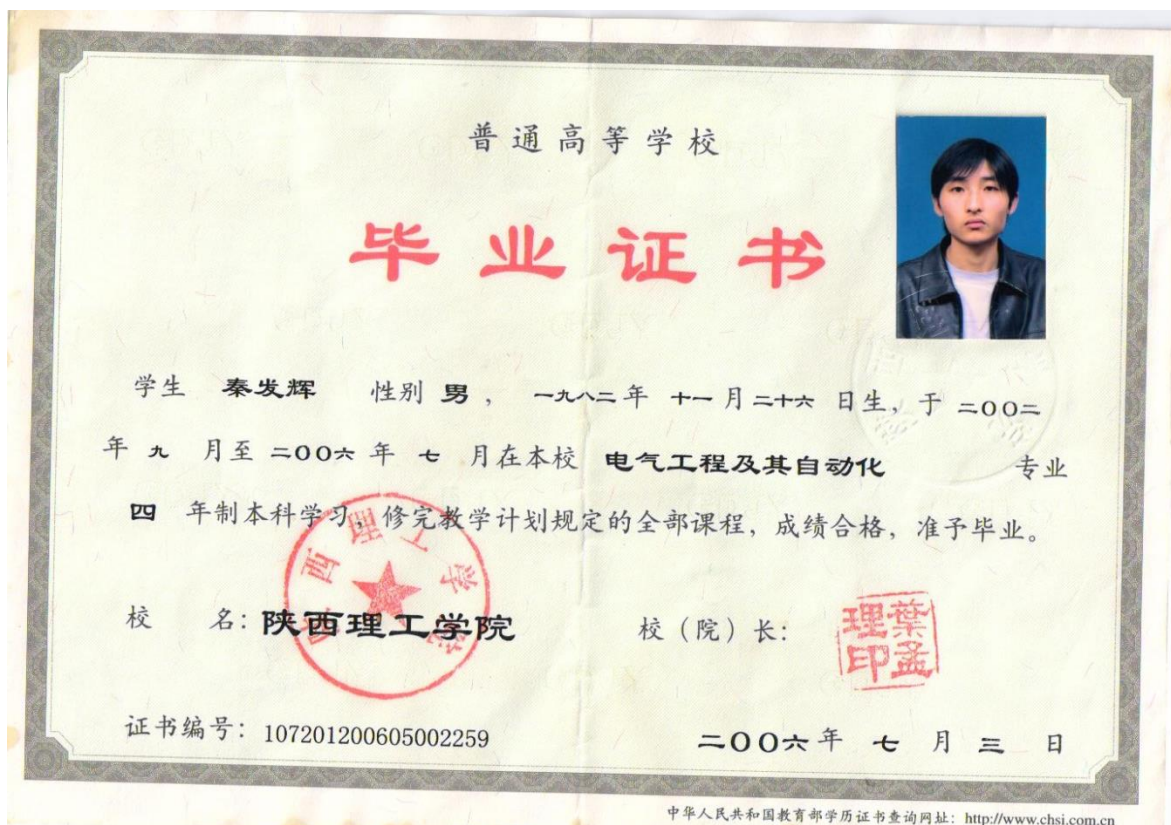 普通高等学校
毕业证书
学生 秦发辉 性别 男 ， 一九八二 年 十一 月 二十六 日生，于 二00二
年 九 月至 二00六 年 七 月在本校 电气工程及其自动化 专业
四 年制本科学习，修完教学计划规定的全部课程，成绩合格，准予毕业。
陕西理工学院
校 名：陕西理工学院 校（院）长：
葉孟理印
证书编号：107201200605002259 二00六 年 七 月 三 日
中华人民共和国教育部学历证书查询网址：http://www.chsi.com.cn